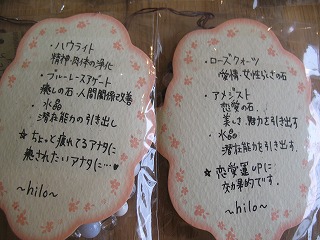 ・ハウライト
精神・肉体の浄化
・ブルーレースアゲート
癒しの石・人間関係改善
・水晶
潜在能力の引き出し
☆ちょっと疲れてるアナタに
癒されたいアナタに…♥
~hilo~
・ローズクォーツ
愛情・女性らしさの石
・アメジスト
恋愛の石。
美しさ、魅力を引き出す
・水晶
潜在能力を引き出す。
☆恋愛運UPに
効果的です。
~hilo~